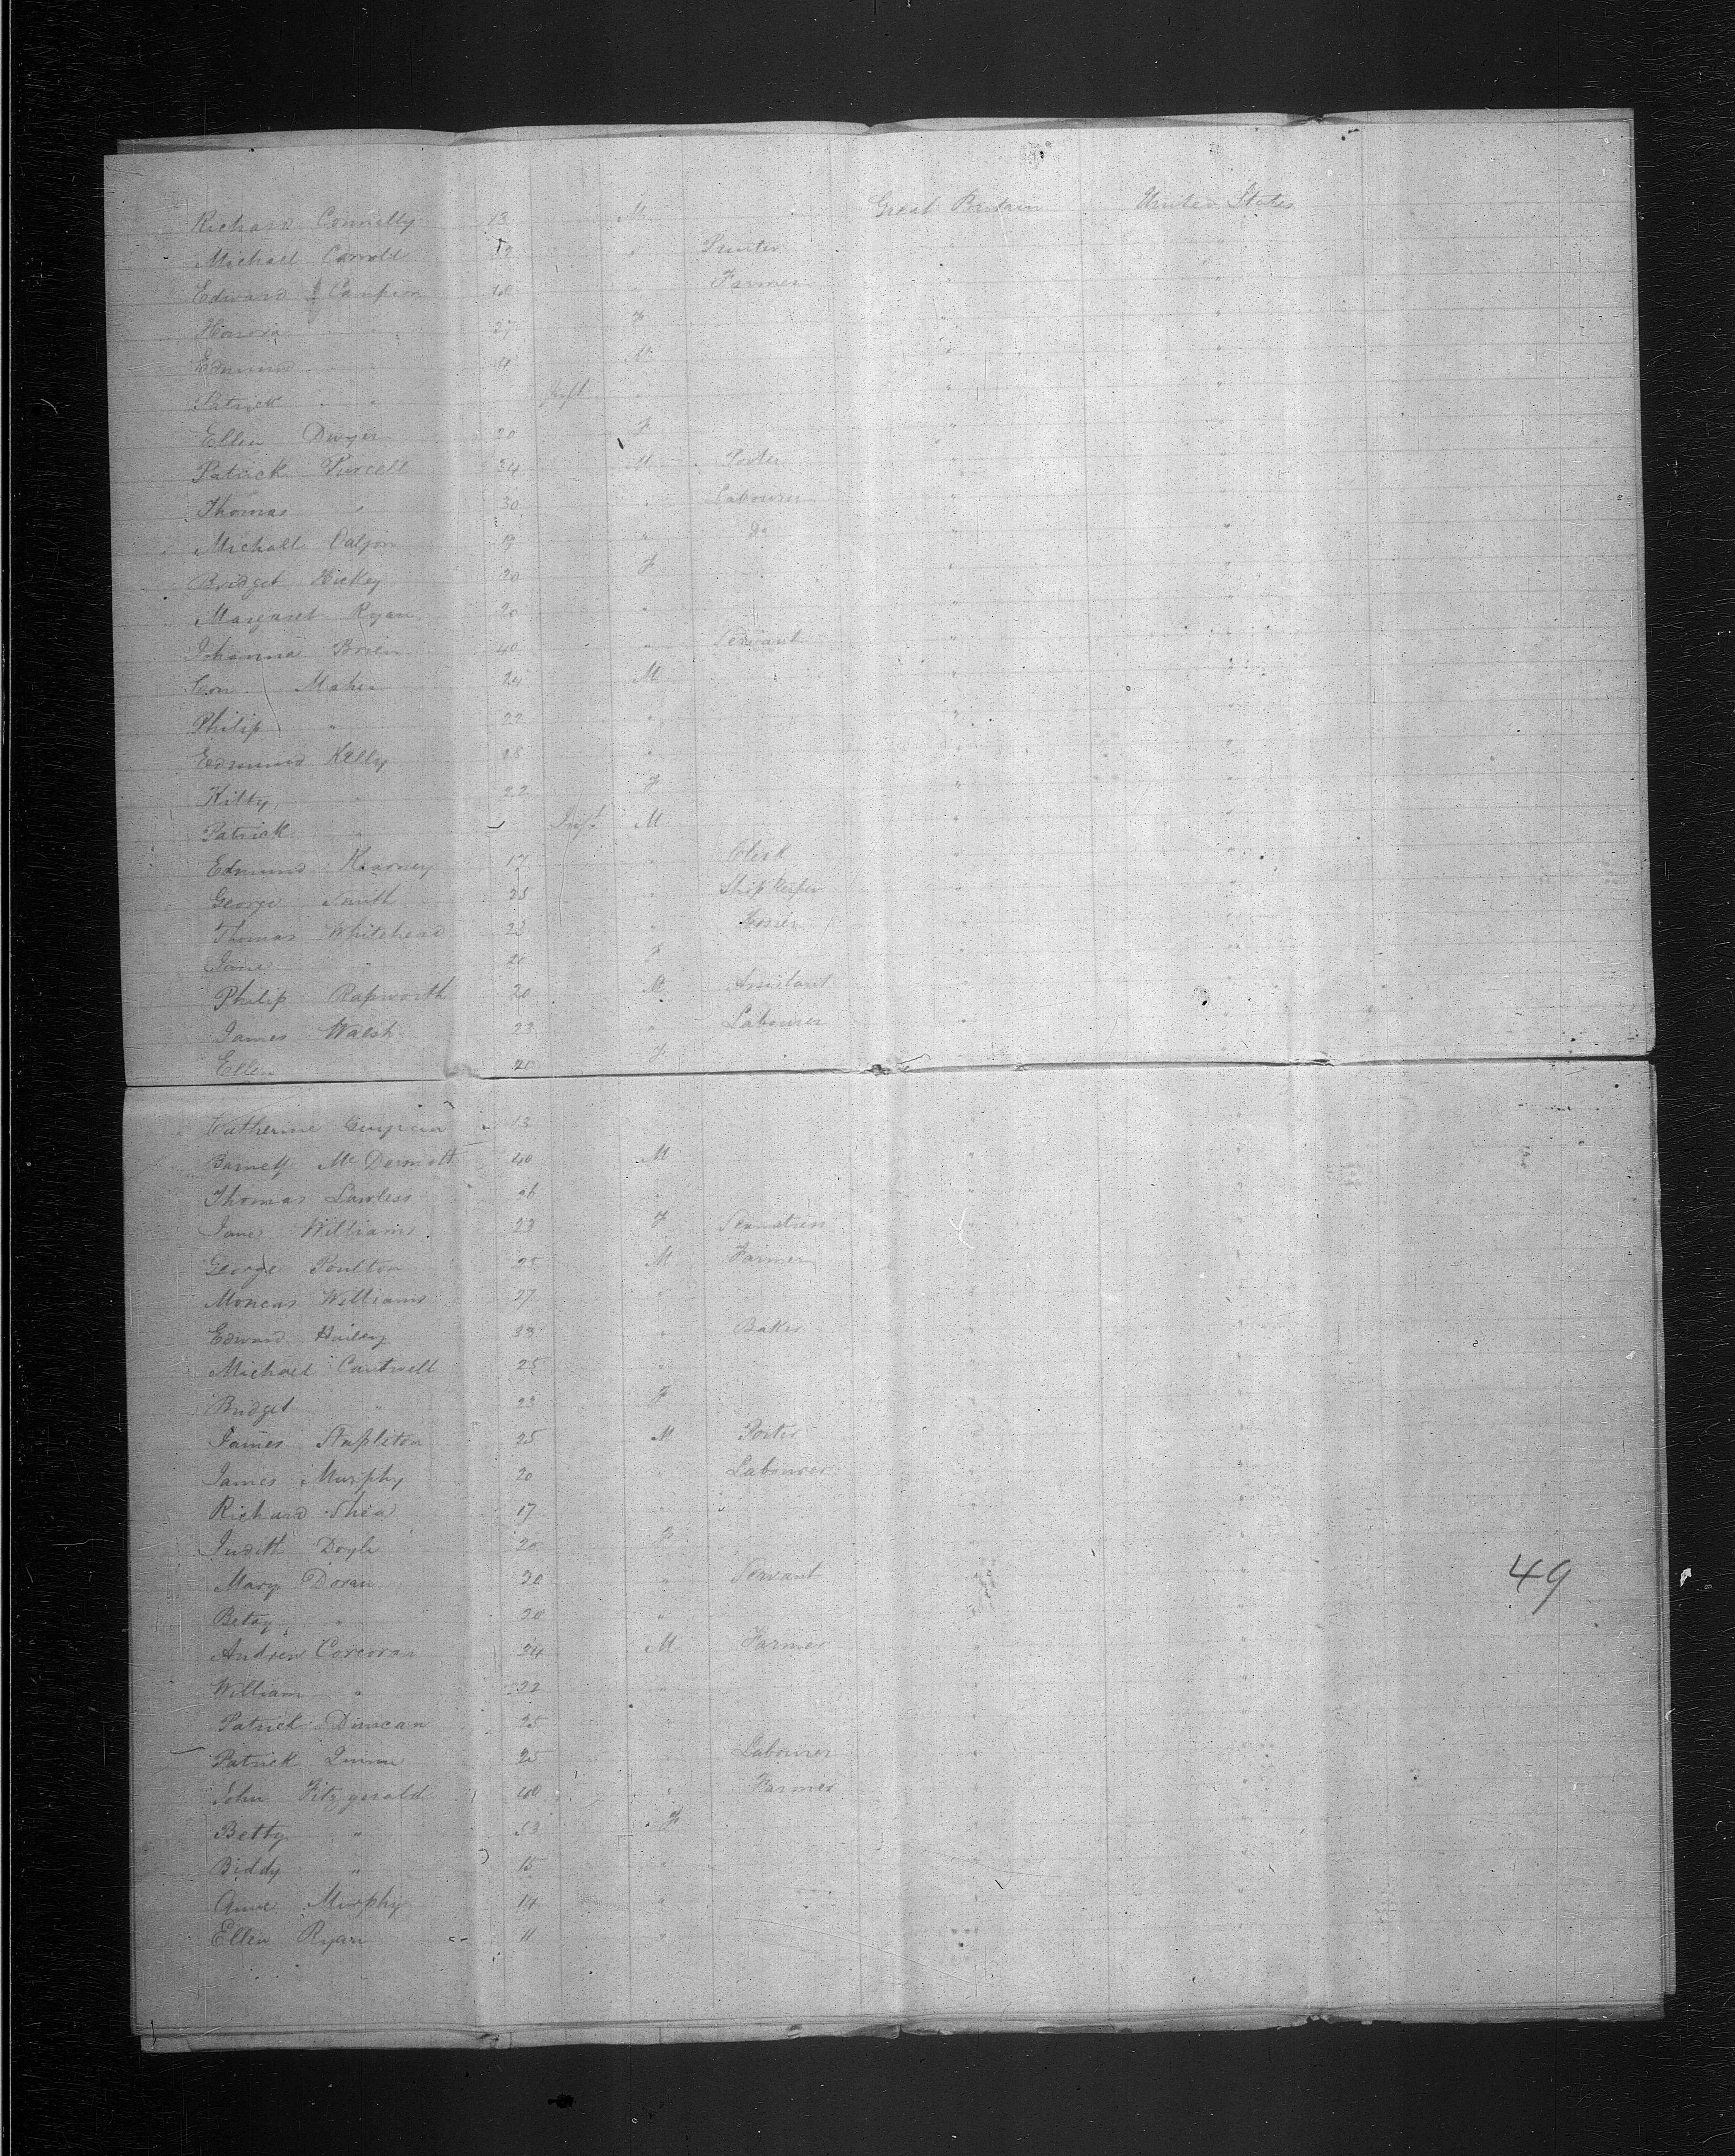 Richard Connelly 13 M Great Britain United States
Michael Carroll " " "
Edward Campion 40 " Farmer " "
Honora " 27 F " "
Edmund " 4 M " "
Patrick " Inft " " "
Ellen Dwyer 20 F " "
Patrick Purcell 34 M Porter " "
Thomas " 30 " Labourer " "
Michael 19 " Do " "
Bridget Hickey 20 F " "
Margaret Ryan 20 " " "
Johanna Brien 40 " Servant " "
Maher 24 M " "
Philip " 22 " " "
Edmund Kelly 28 " " "
Kitty " 22 F " "
Patrick " Inft M " "
Edmund Kearney 17 " Clerk " "
George Smith 25 " Shop Keeper " "
Thomas Whitehead 23 " Hosier " "
Jane " 20 F " "
Philip Rapworth 20 M Assistant " "
James Walsh 23 " Labourer " "
Ellen 20 F
Catherine 13 "
Barnett McDermott 40 M " "
Thomas Lawless 26 " " "
Jane Williams 23 F Seamstress " "
George Poulton 25 M Farmer " "
Williams 27 " " "
Edward Hailey 33 " Baker " "
Michael Cantwell 25 " " "
Bridget " 23 F " "
James Stapleton 25 M Porter " "
James Murphy 20 " Labourer " "
Richard Shea 17 " " "
Judith Doyle 20 F " "
Mary Doran 20 " Servant " "
Betsy " 20 " " "
Andrew Corcoran 24 M Farmer " "
William " 22 " " "
Patrick Duncan 25 " " "
Patrick Quinn 25 " Labourer " "
John Fitzgerald 40 " Farmer " "
Betty " 53 F " "
Biddy " 15 " " "
Anne Murphy 14 " " "
Ellen Ryan 11 " " "
49